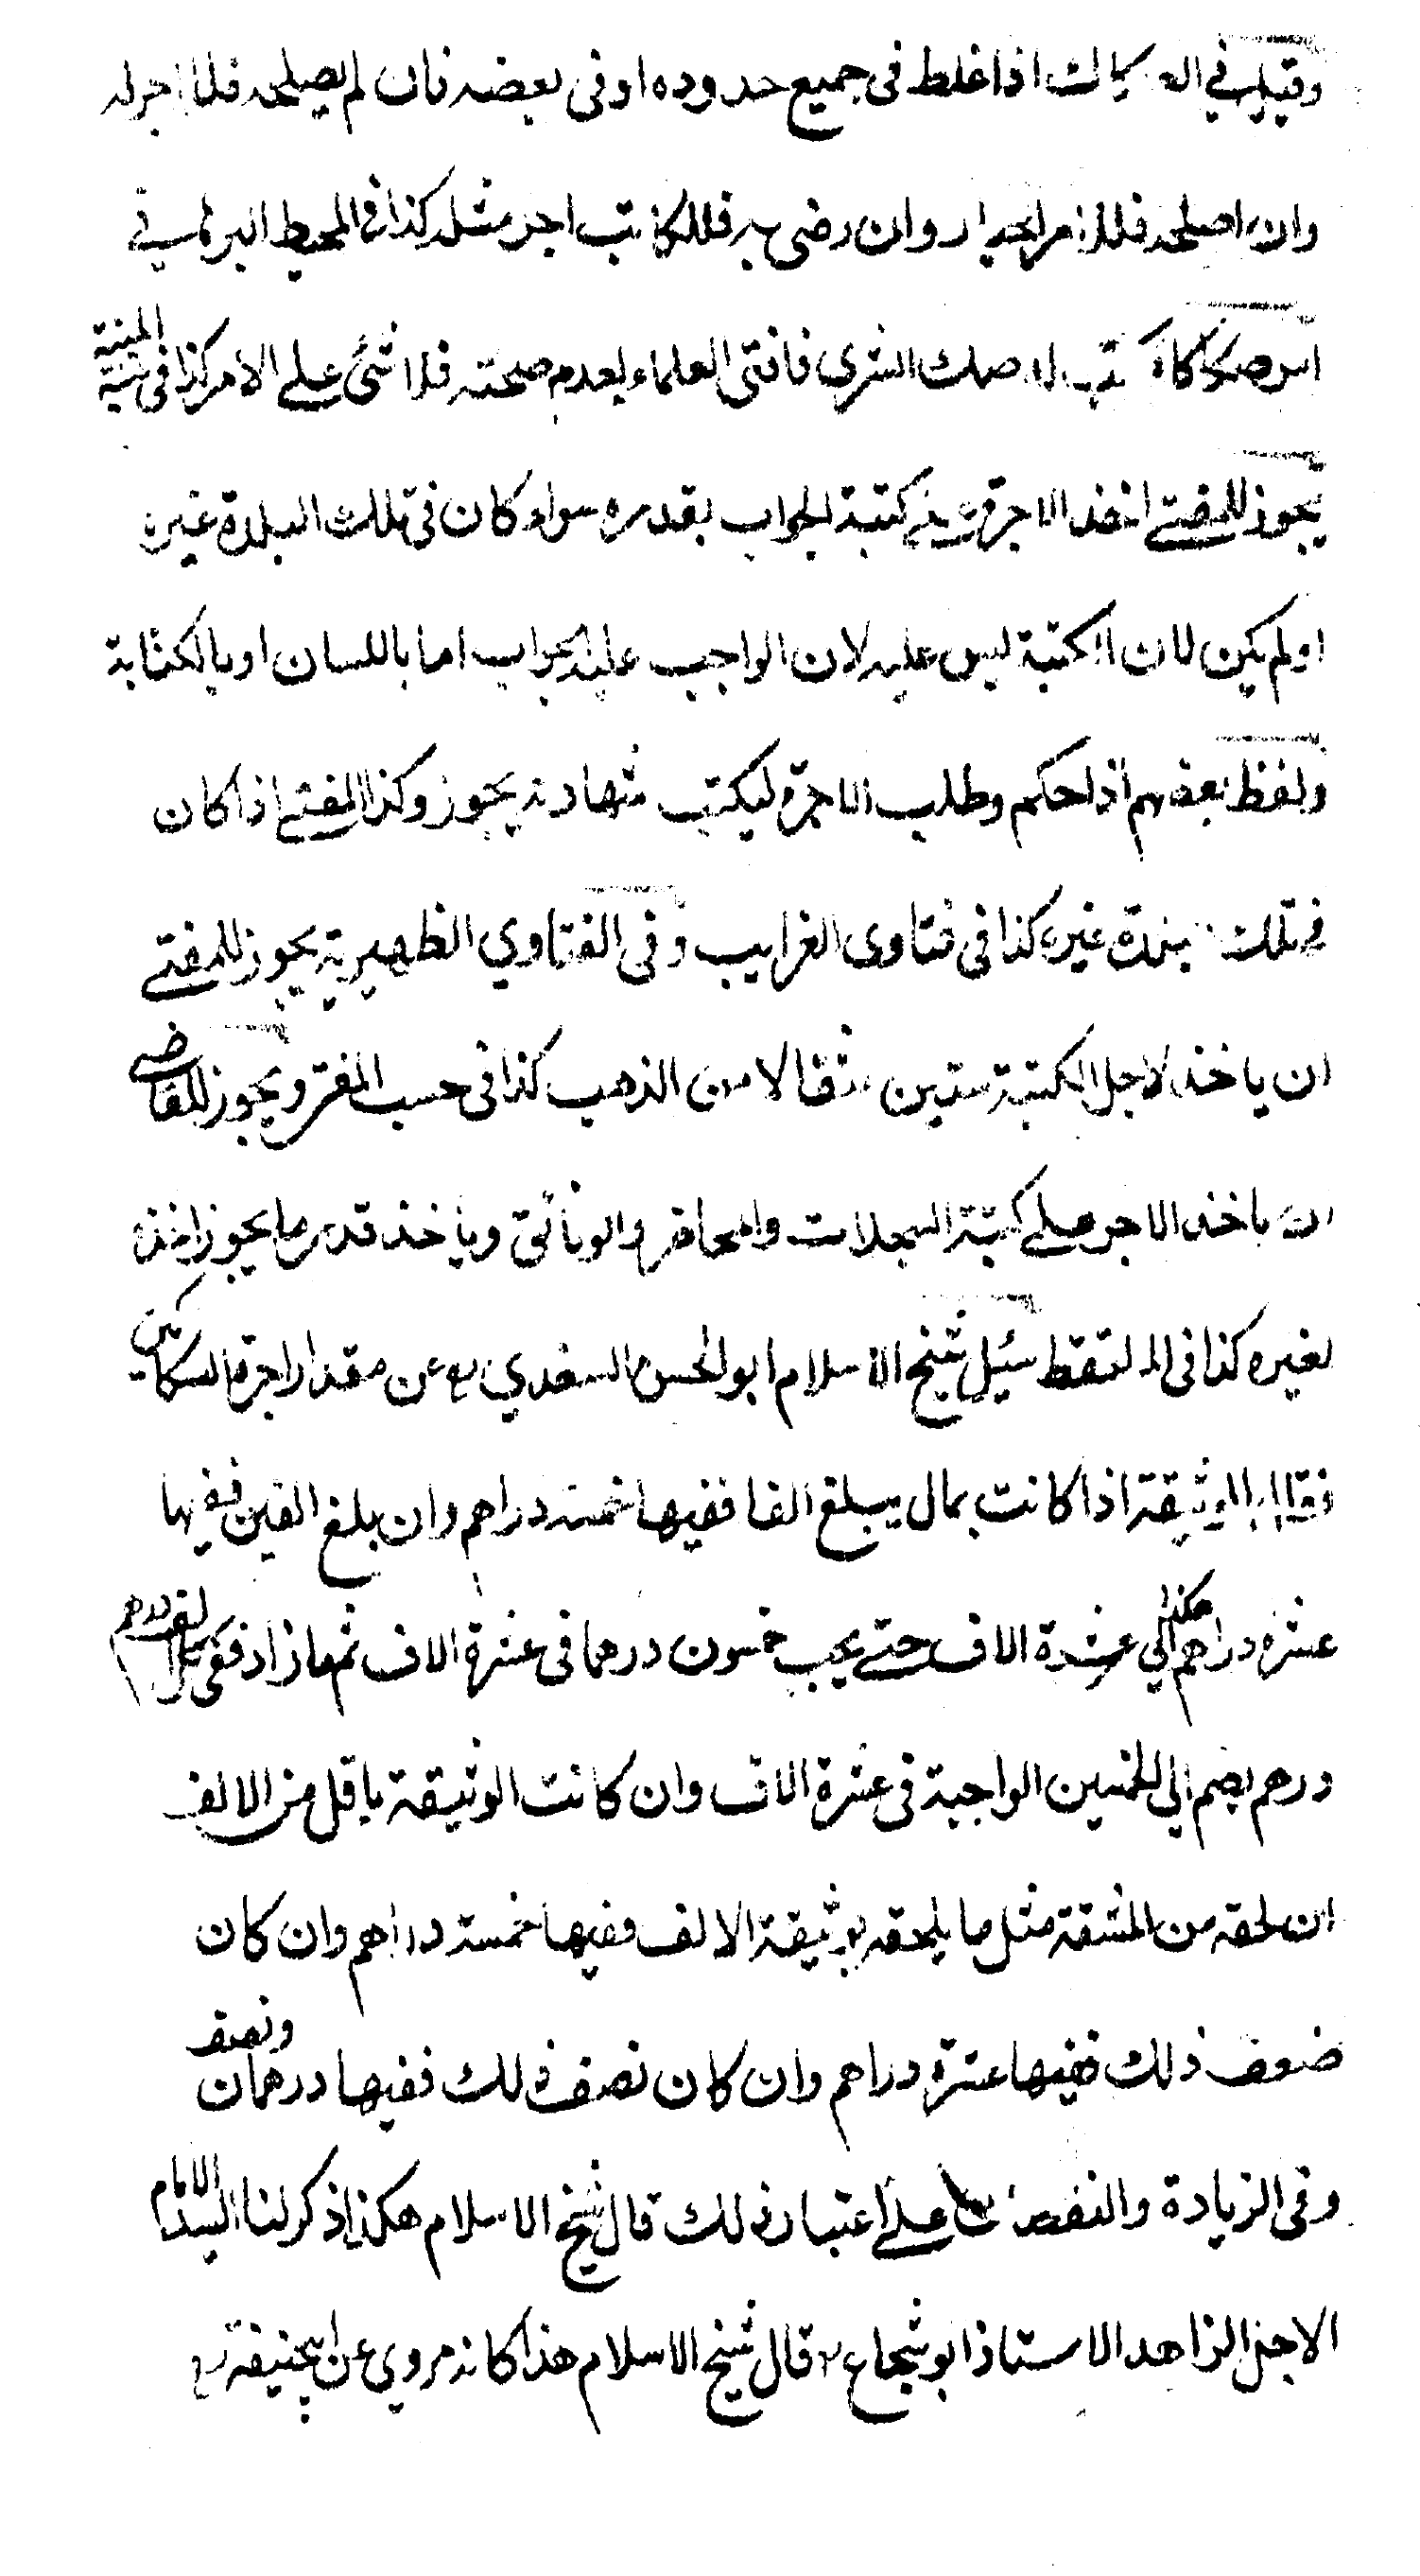 وقيل في الصكاك اذا غلط فى جميع حدوده او فى بعضه فان لم يصلحه فلا اجر له
وان اصلحه فللامر الخيار وان رضى به فللكاتب اجر مثله كذا فى المحيط البرهاني
امر صكاكا كتب له صك الشرى فافتى العلماء بعدم صحته فلا شئ علي الامر كذا فى المنية
يجوز للمفتي اخذ الاجرة على كتبة الجواب بقدره سواء كان فى تلك البلدة غيره
او لم يكن لان الكتبة ليس عليه لان الواجب عليه الجواب اما باللسان او بالكتابة
ولفظ بعضهم اذا حكم وطلب الاجرة ليكتب شهادته يجوز وكذا المفتي اذا كان
في تلك بلدة غيره كذا فى فتاوى الغرايب وفى الفتاوي الظهيرية يجوز للمفتي
ان ياخذ لاجل الكتبة ستين مثقالا من الذهب كذا فى حسب المفتر ويجوز للقاضي
ان ياخذ الاجر على كتبة السجلات والمحاضر والوثائق وياخذ قدر ما يجوز اخذه
لغيره كذا فى الملتقط سئيل شيخ الاسلام ابو الحسن السغدي رح عن مقدار اجرة الصكاكين
فقال الوثيقة اذا كانت بمال يبلغ الفا ففيها خمسة دراهم وان بلغ الفين ففيها
عشره دراهم هكذا الي عشرة الاف حتي يجب خمسون درهما فى عشرة الاف ثم ما زاد ففى كل الف درهم
درهم يضم الي الخمسين الواجبة فى عشرة الاف وان كانت الوثيقة باقل من الالف
ان لحقه من المشقة مثل ما يلحقه بوثيقة الالف ففيها خمسة دراهم وان كان
ضعف ذلك ففيها عشرة دراهم وان كان نصف ذلك ففيها درهمان ونصف
وفى الزيادة والنقصان علي اعتبار ذلك قال شيخ الاسلام هكذا ذكر لنا السيد الامام
الاجل الزاهد الاستاذ ابو شجاع رح قال شيخ الاسلام هذا كانه مروي عن ابيحنيفة رح